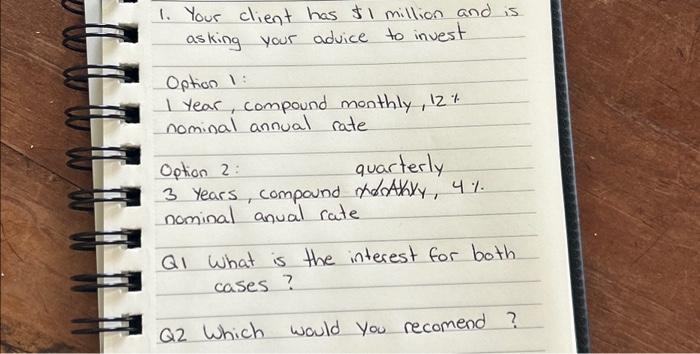 1. Your client has $1 million and is
asking your advice to invest
Option 1:
1 Year, compound monthly, 12%
nominal annual rate
Option 2:
quarterly
3 Years, compound monthly, 4%
nominal anual rate
Q1 What is the interest for both
cases?
Q2 Which would you recomend?